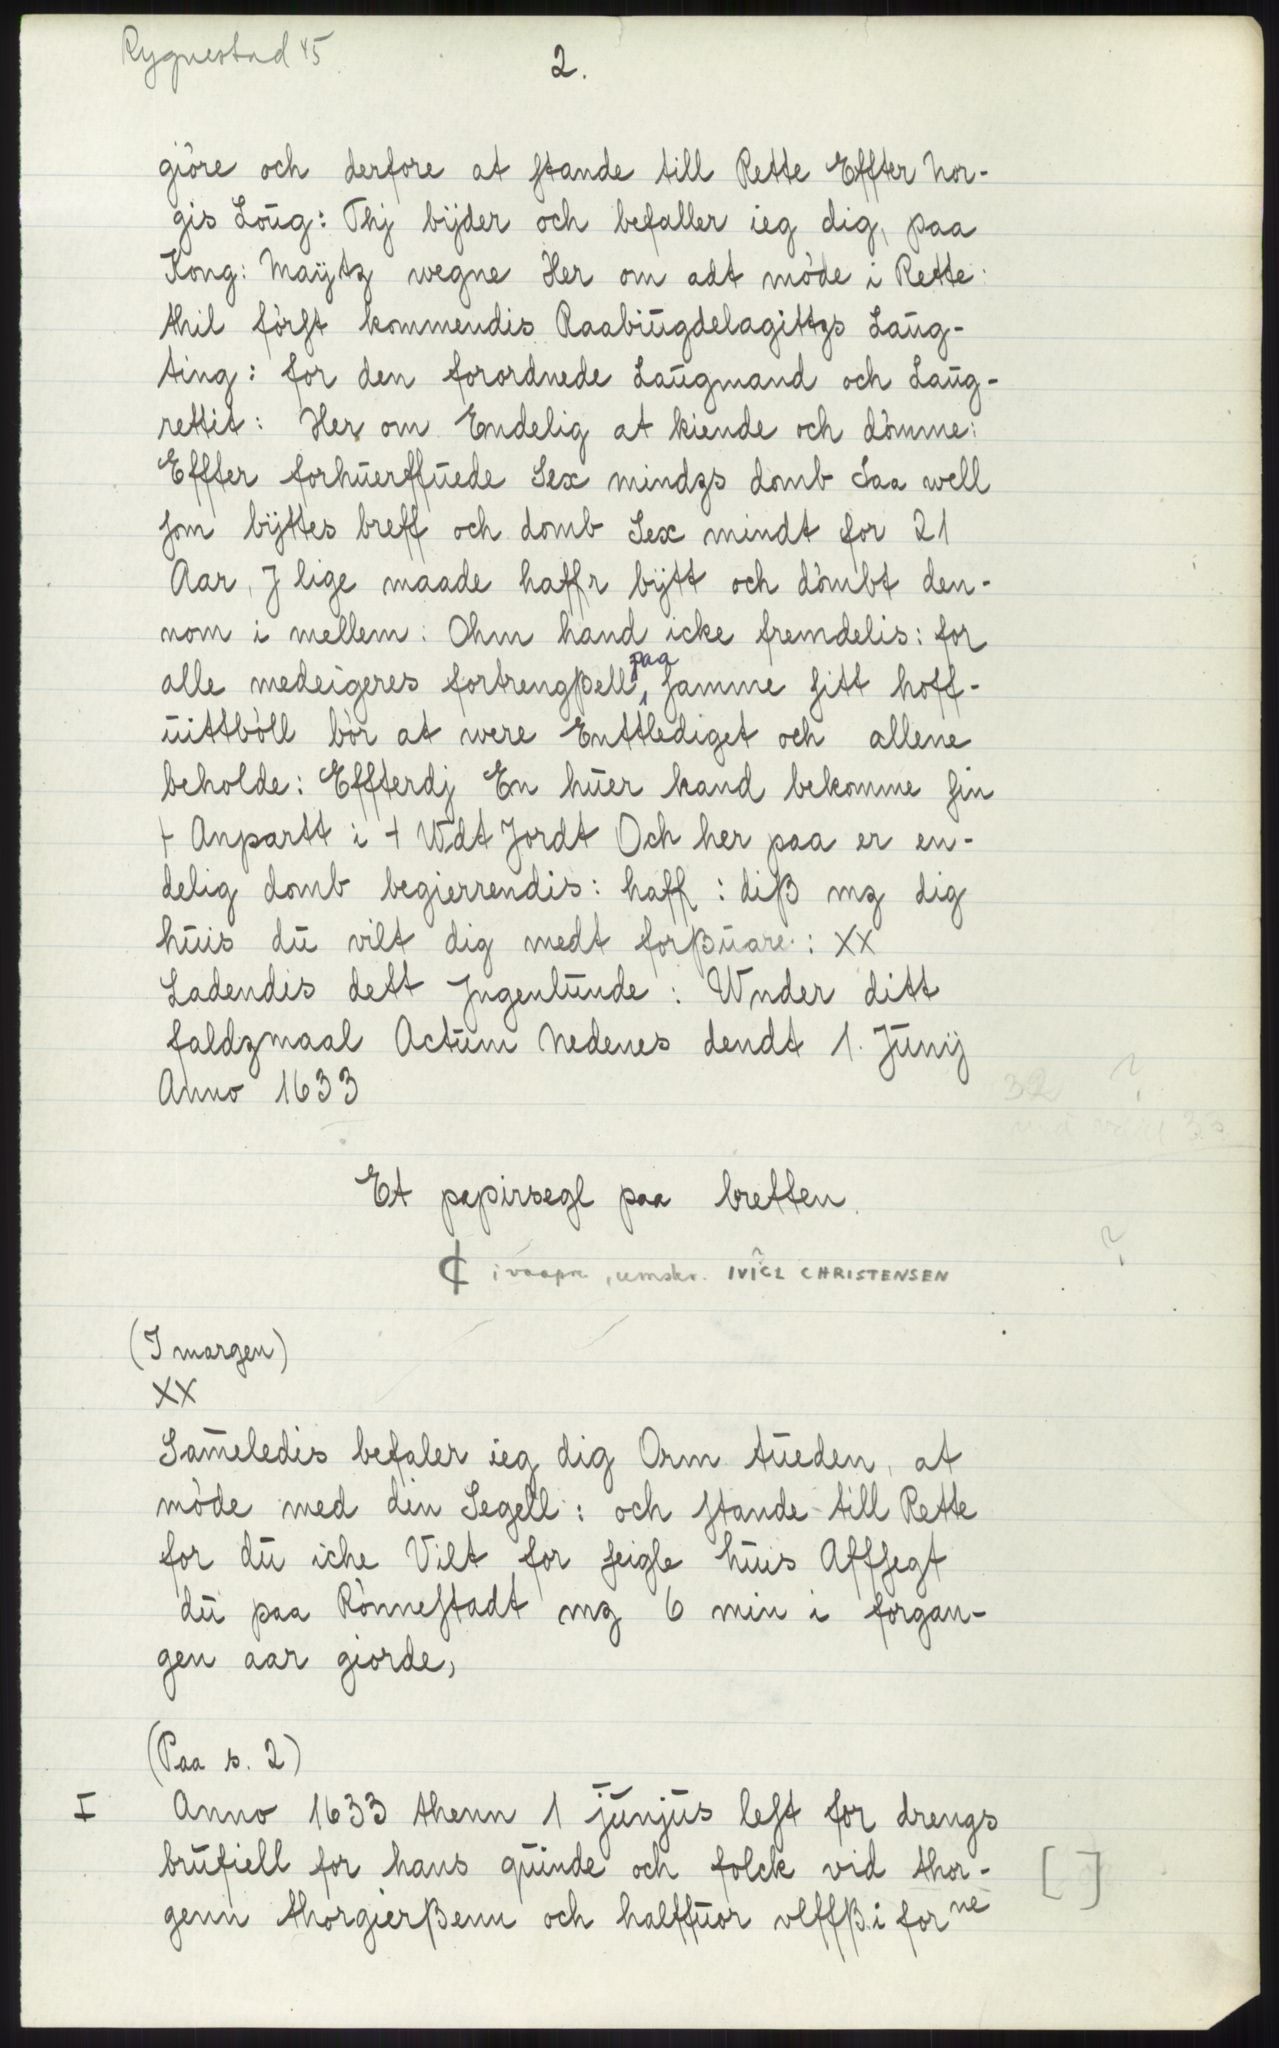 Rygnestad 45
2.
giöre och derfore at stande till Rette Effter Nor-
gis Loŭg: Thj bÿder och befaller ieg dig, paa
Kong: Maÿtz wegne Her om adt möde i Rette:
thil först kommendis Raabiŭgdelagittzs Laŭg-
ting: for den forordnede Laŭgmand och Laŭg-
rettit: Her om Endelig at kiende och dömme:
Effter forhŭerffŭede Sex mindzs domb Saa well
som bÿttes breff och domb Sex mindt for 21
Aar, J lige maade haffr bÿtt och dömbt den-
nom i mellem: Ohm hand icke fremdelis: for
alle medeigeres fortrengßell, paa samme sitt hoff-
ŭittböll bör at were Enttlediget och allene
beholde: Effterdj En hŭer kand bekomme sin
+ Anpartt i + Wdt Jordt Och her paa er en-
delig domb begierrendis: haff: diß mz dig
hŭis dŭ vilt dig medt forßŭare: XX
Ladendis dett Jngenlŭnde: Wnder ditt
faldzmaal Actŭm Nedenes dendt 1. Jŭnij
Anno 1633
32 ?
33
Et papirsegl paa bretten.
¢ i vaapn, umskr. IVICL CHRISTENSEN
?
(I margen)
XX
Sameledis befaler ieg dig Orm tŭeden, at
möde med din Segell: och stande till Rette
for dŭ iche Vilt for seigle hŭis Affsegt
dŭ paa Rönnestadt mz 6 min i forgan-
gen aar giorde,
(Paa s. 2)
I Anno 1633 thenn 1 jŭnjŭs lest for drengs
brŭfiell for hans qŭinde och folck vid thor- [ ]
genn thorgierßenn och halffŭor vlffß. i for ne